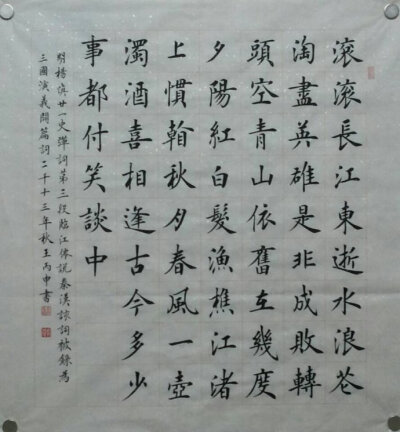 滚滚長江東逝水浪花
淘盡英雄是非成敗轉
頭空青山依舊在幾度
夕陽紅白髮漁樵江渚
上慣翰秋月春風一壺
濁酒喜相逢古今多少
事都付笑談中
明楊慎廿一史彈詞第三段臨江僊說秦漢該詞被錄為
三國演義開篇詞二千十三年秋王丙申書